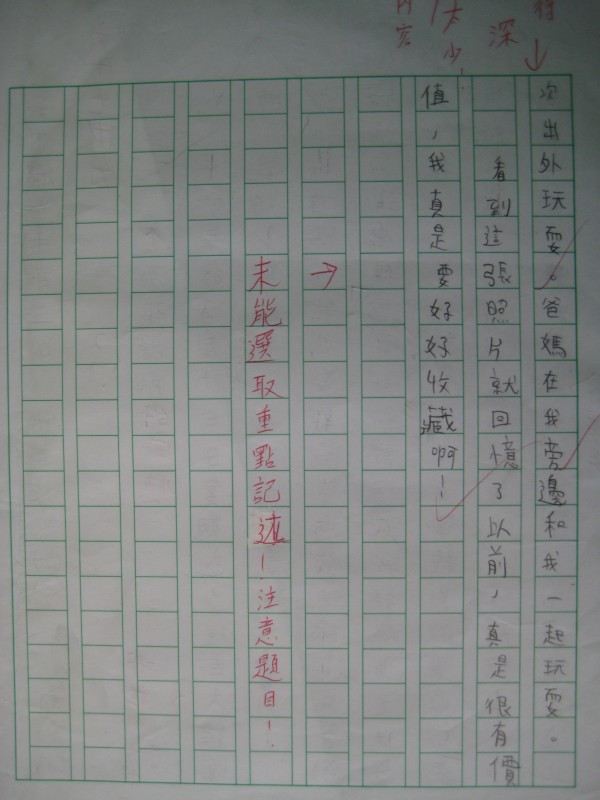 次出外玩耍。爸媽在我旁邊和我一起玩耍。
看到這張照片就回憶了以前，真是很有價
值，我真是要好好收藏啊！
深
太少！
內容
→未能選取重點記述！注意題目！